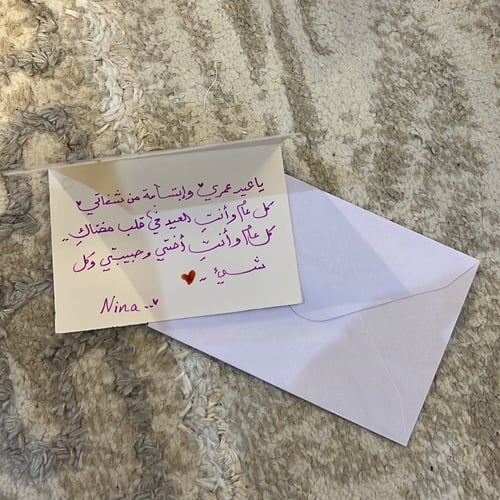 يا عيد عمري وإبتسامة من شفاتي
كل عام وأنتِ العيد في قلب مضناكِ..
كل عام وأنتِ أختي وحبيبتي وكل
شيء ..
Nina ..